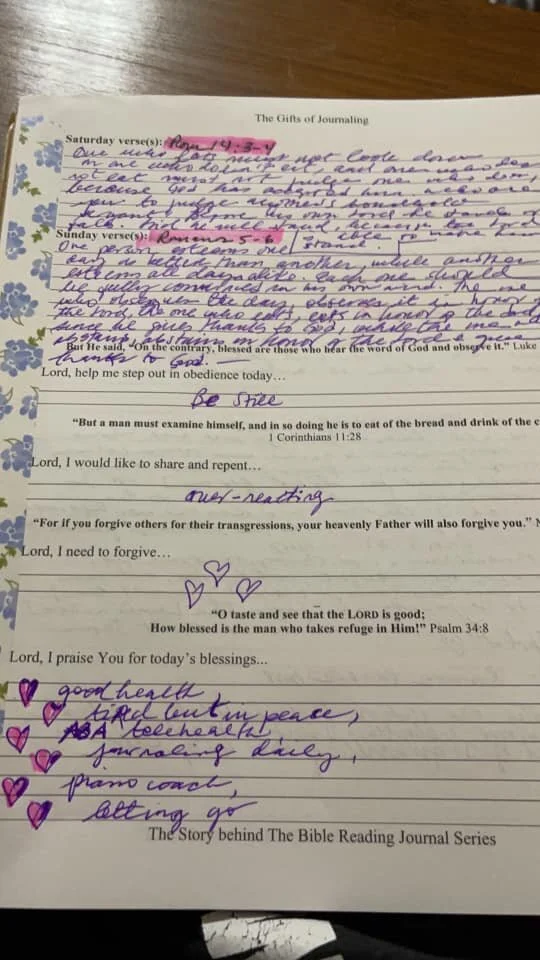 The Gifts of Journaling
Saturday verse(s): Rom 14:3-4
One who eats must not look down
on one who does not eat, and one who does
not eat must not judge one who does,
because God has accepted him who are
you to judge another's household
servant? Before his own Lord he stands or
falls. And he will stand, because the Lord
is able to make him
stand
Sunday verse(s): Romans 5-6
One person esteems one
day as better than another, while another
esteems all days alike. Each one should
be fully convinced in his own mind. The one
who observes the day, observes it in honor of
the Lord, the one who eats, eats in honor of the Lord
since he gives thanks to God, while the one who
abstains, abstains in honor of the Lord & gives
thanks to God.
But He said, "On the contrary, blessed are those who hear the word of God and observe it." Luke
Lord, help me step out in obedience today…
Be Still
"But a man must examine himself, and in so doing he is to eat of the bread and drink of the c
1 Corinthians 11:28
Lord, I would like to share and repent…
over-reacting
"For if you forgive others for their transgressions, your heavenly Father will also forgive you."
Lord, I need to forgive…
"O taste and see that the LORD is good;
How blessed is the man who takes refuge in Him!" Psalm 34:8
Lord, I praise You for today's blessings...
good health,
tired but in peace,
ABA telehealth,
journaling daily,
piano coach,
letting go
The Story behind The Bible Reading Journal Series